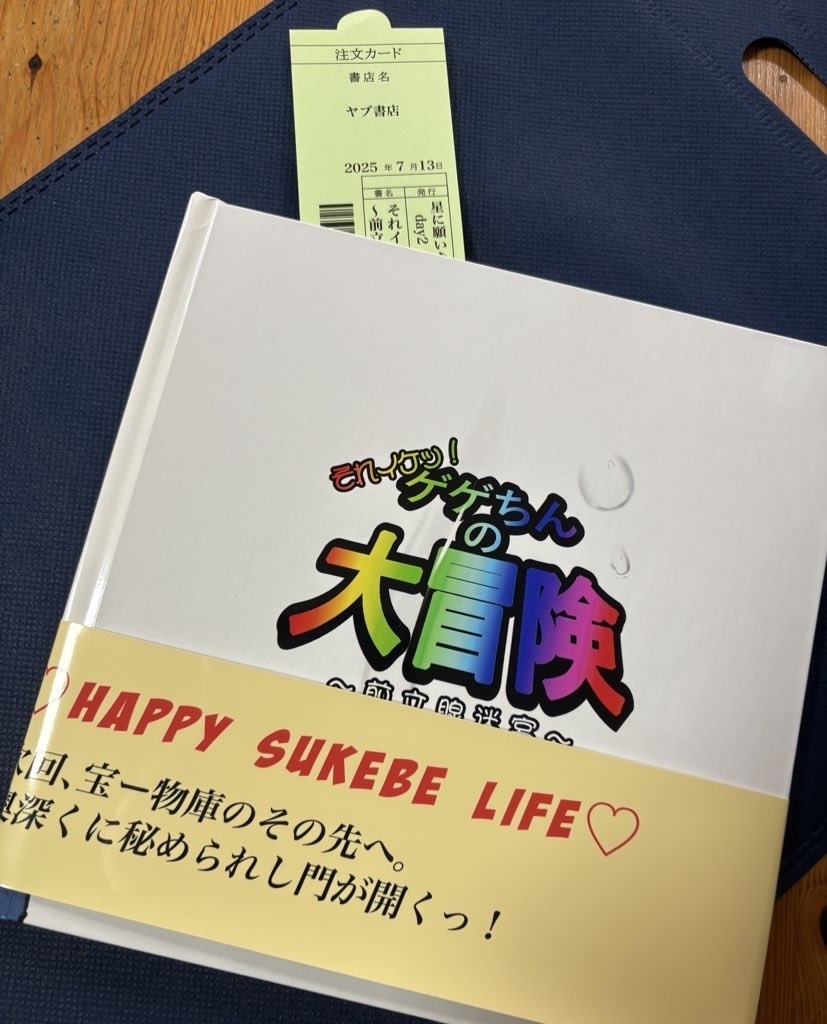 注文カード
書店名
ヤブ書店
2025年7月13日
書名
発行
星に願い
day2
それイ
〜前立
それイケッ!
ゲゲちん
の
大冒険
〜前立腺迷宮〜
♡HAPPY SUKEBE LIFE♡
次回、宝ー物庫のその先へ。
奥深くに秘められし門が開くっ!